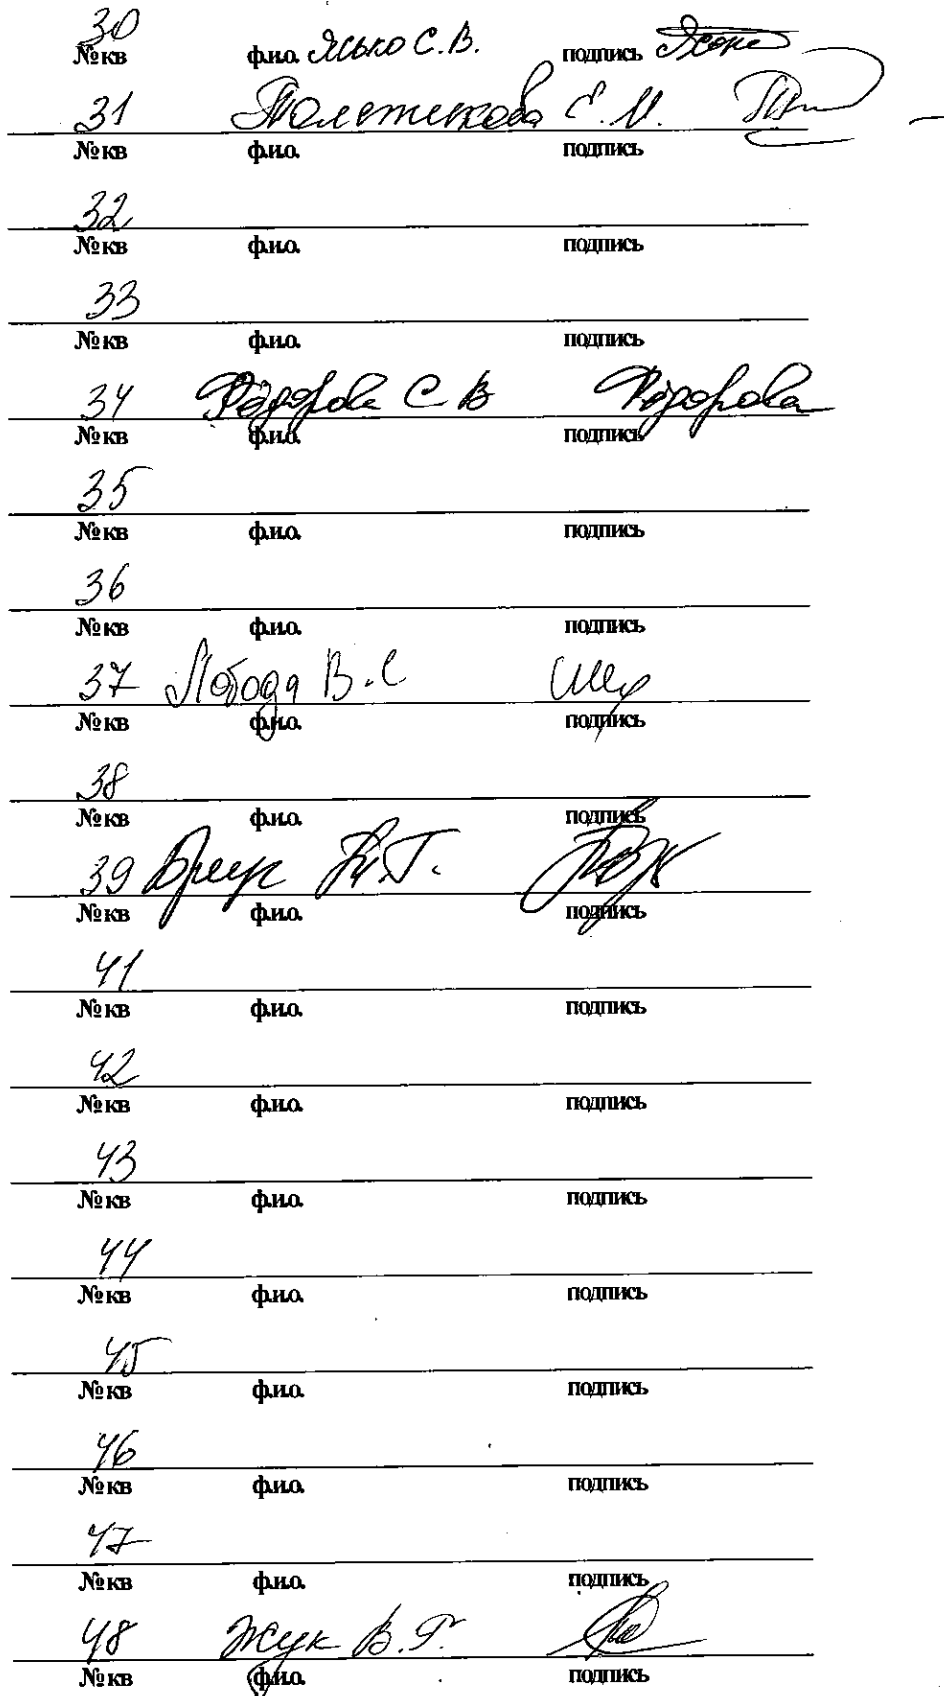 30
№ кв ф.и.о. Ясько С.В. подпись
31 Е.И.
№ кв ф.и.о. подпись
32
№ кв ф.и.о. подпись
33
№ кв ф.и.о. подпись
34 Фёдорова С В Фёдорова
№ кв ф.и.о. подпись
35
№ кв ф.и.о. подпись
36
№ кв ф.и.о. подпись
37 Лобода В.С
№ кв ф.и.о. подпись
38
№ кв ф.и.о. подпись
39
№ кв ф.и.о. подпись
41
№ кв ф.и.о. подпись
42
№ кв ф.и.о. подпись
43
№ кв ф.и.о. подпись
44
№ кв ф.и.о. подпись
45
№ кв ф.и.о. подпись
46
№ кв ф.и.о. подпись
47
№ кв ф.и.о. подпись
48 Жук В.Г.
№ кв ф.и.о. подпись